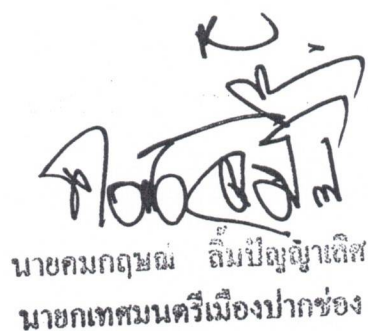 นายคมกฤษณ์ ลิ้มปัญญาเลิศ
นายกเทศมนตรีเมืองปากช่อง